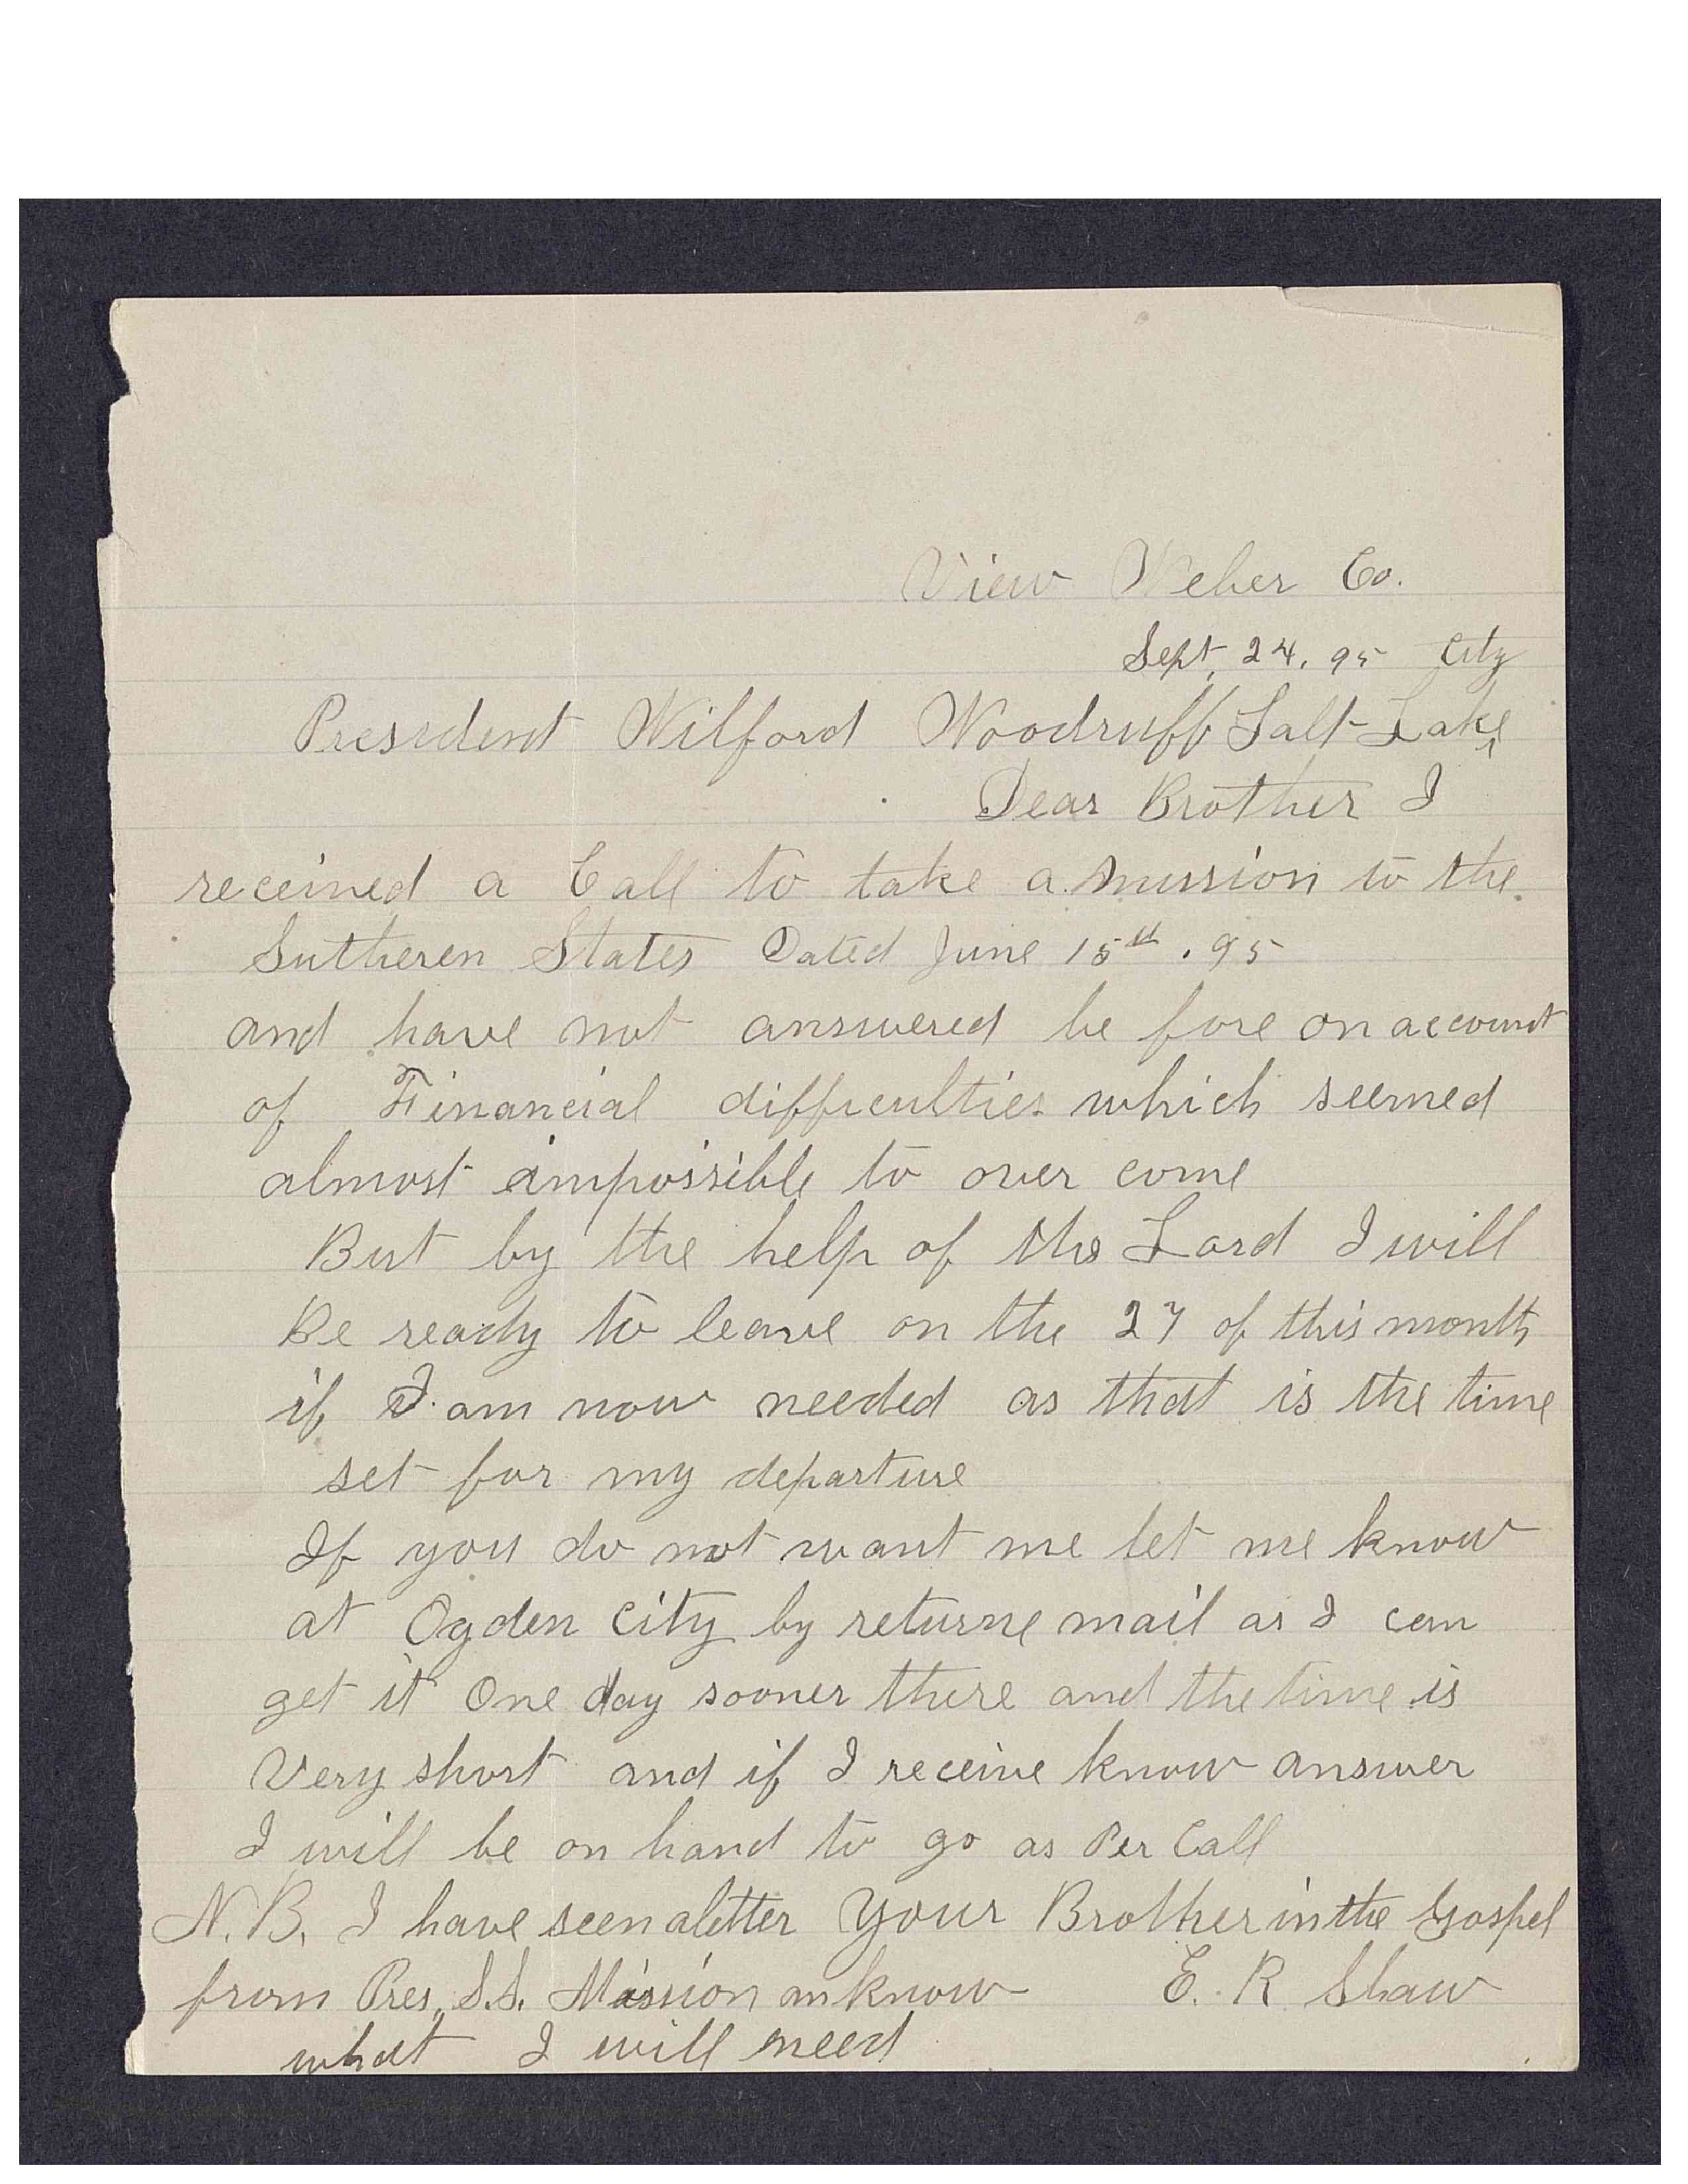 View Weber Co.
Sept, 24, 95 City
President Wilford Woodruff Salt Lake ^
Dear Brother I
received a Call to take a mission to the
Sutheren States Dated June 15th . 95
and have not answered be fore on account
of Financial difficulties which seemed
almost impossible to over come
But by the help of the Lord I will
Be ready to leave on the 27 of this month
if I am now needed as that is the time
set for my departure
If you do not want me let me know
at Ogden City by returne mail as I can
get it One day sooner there and the time is
Very short and if I receive know answer
I will be on hand to go as Per Call
N.B. I have seen a letter Your Brother in the Gospel
from Pres. S.S. Mission an know E. R Shaw
what I will need